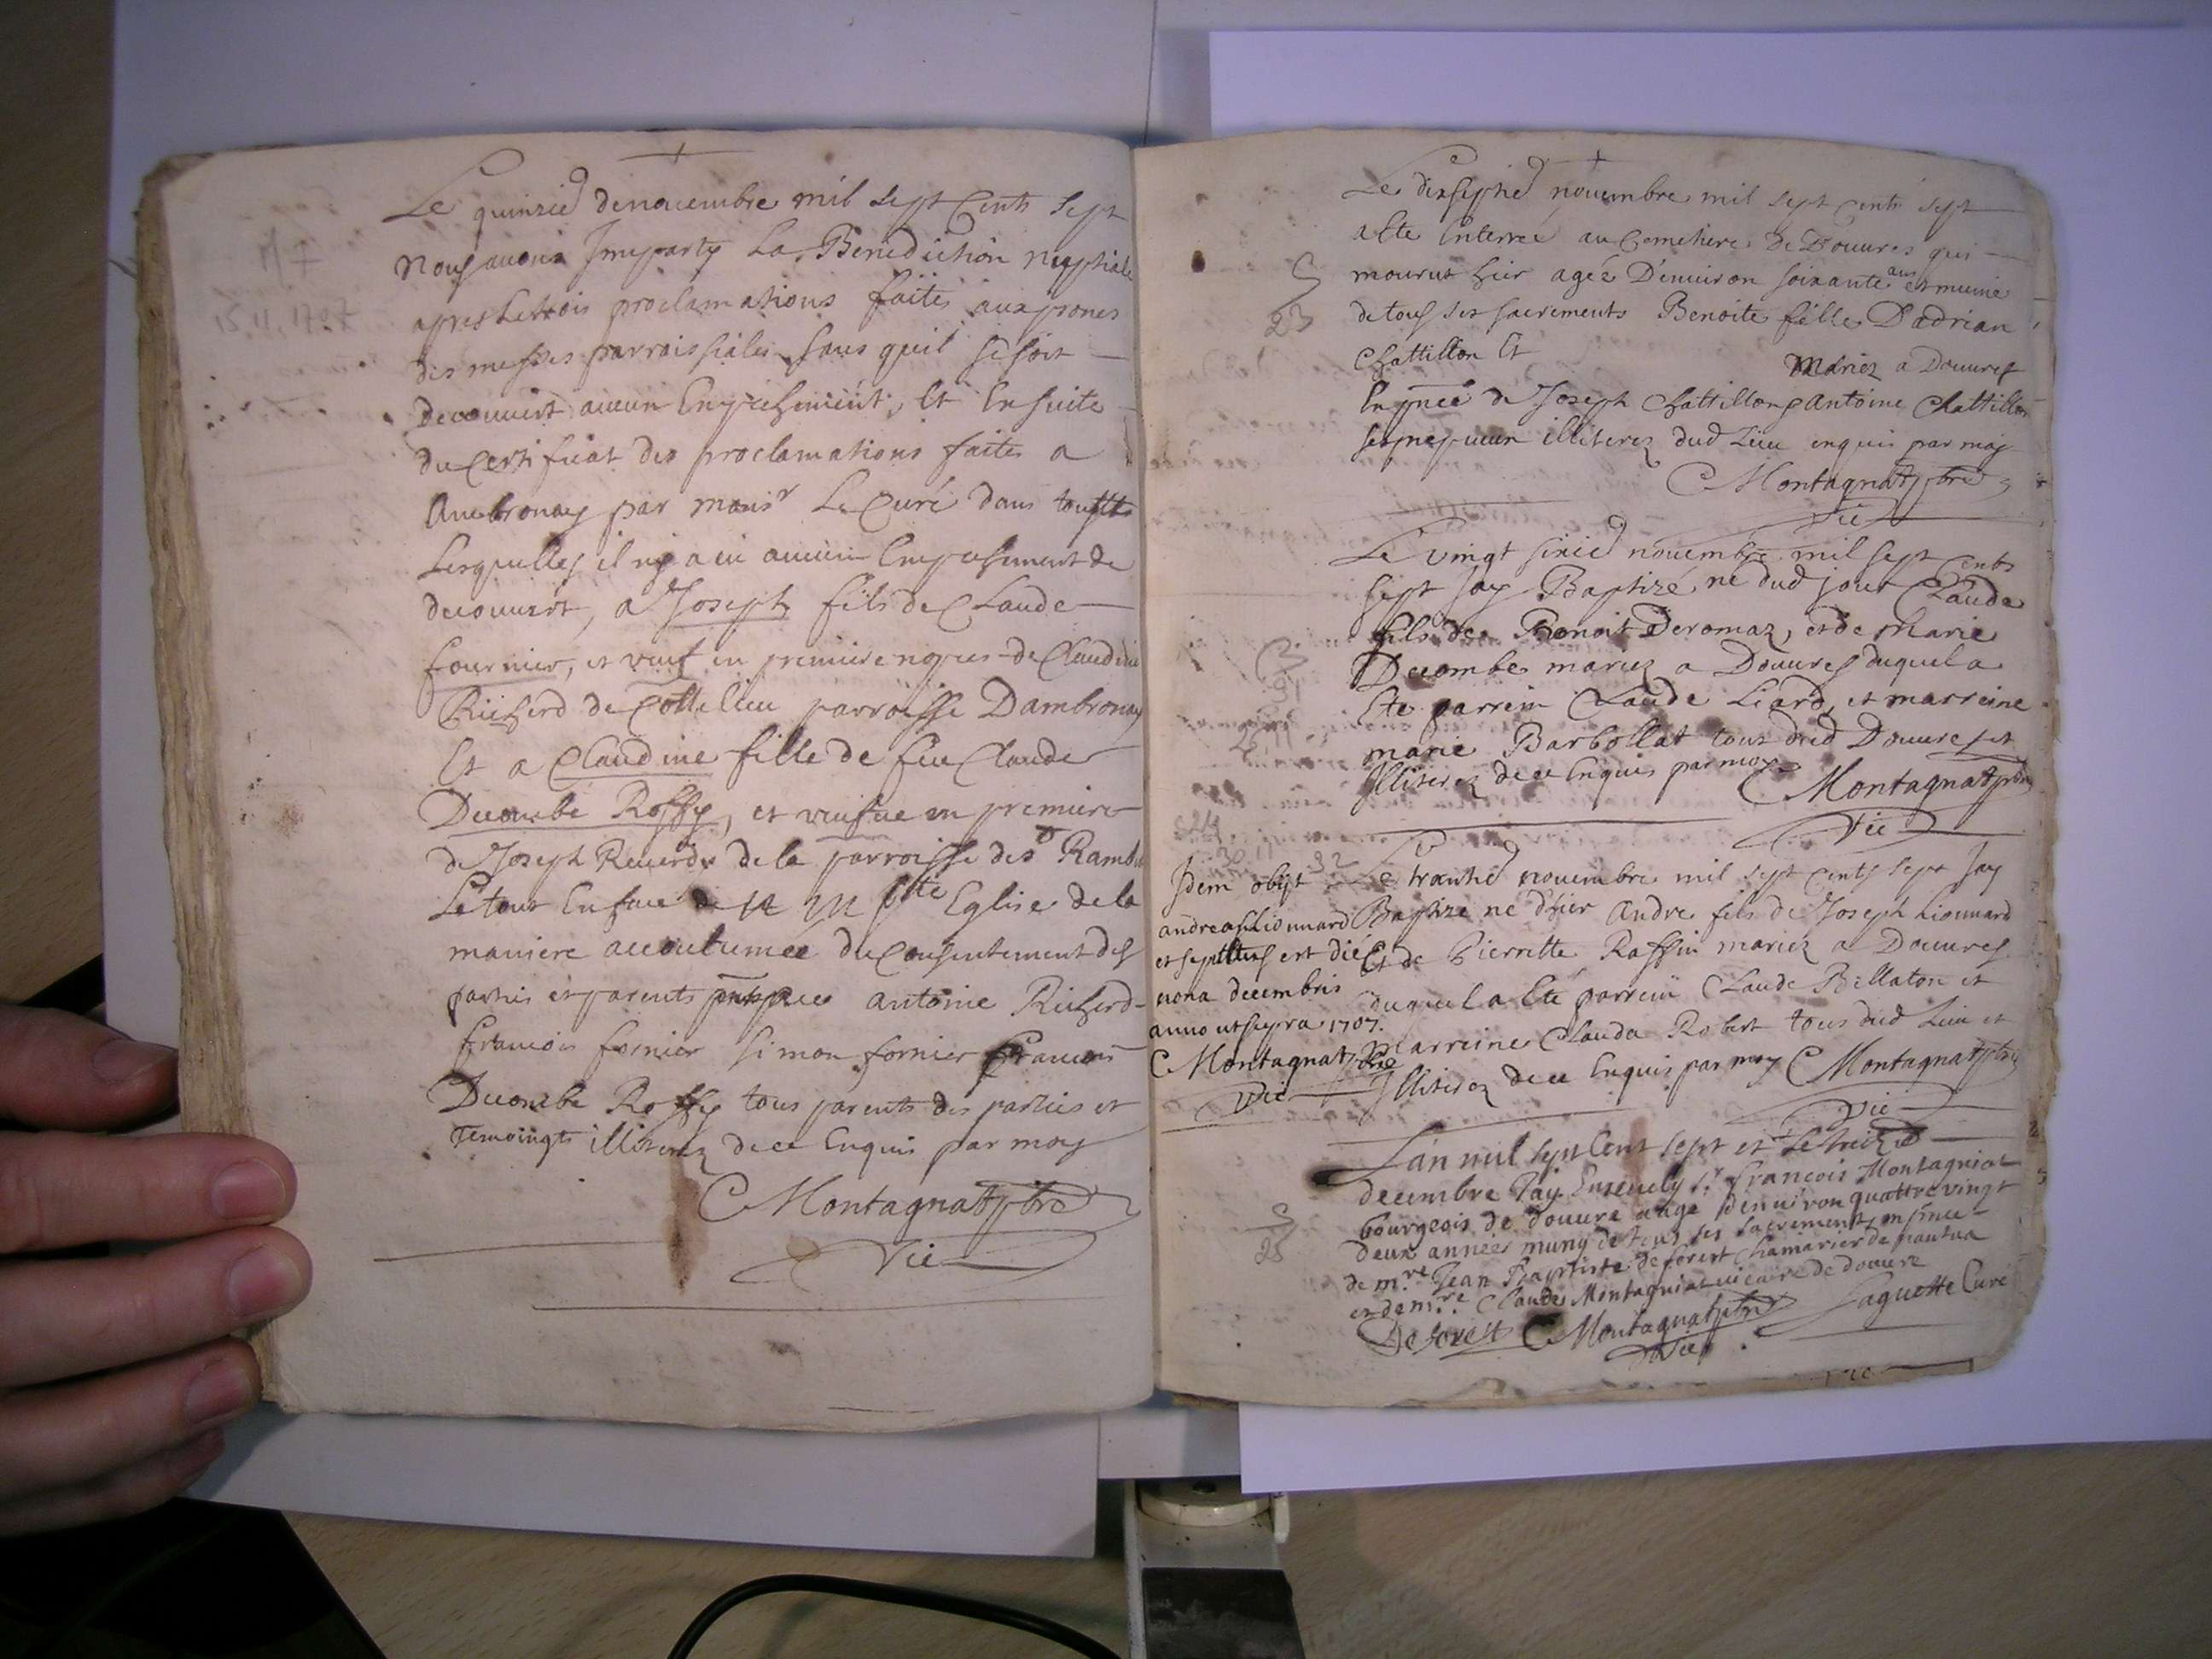 Le quinzie de novembre mil sept Cents sept
Nous avons Imparty La Benediction nuptiale
apres les trois proclamations faites aux prones
des messes parroissiales sans quil se soit
decouvert aucun Empeschement, Et Ensuite
du Certificat des proclamations faites a
Ambronay par monsr Le Curé dans touttes
Lesquelles il ny a eu aucun Empeschement de
decouvert, a Joseph fils de Claude
fournier, et veuf en premiere nopces de Claudine
Richerd de Cottelieu parroisse Dambronay
Et a Claudine fille de feu Claude
Decombe Roffy, et veufue en premiere
de Joseph Reverdy de la parroisse de St Rambt
Le tout En face de N M Ste Eglise de la
maniere accoutumée du Consentement des
parties et parents antoine Richerd
francois fornier Simon fornier francois
Decombe Roffy tous parents des parties et
Temoingts illiterez de ce Enquis par moy
C Montagnat ptre
Vic
15.11.1707
Le dixseptie novembre mil sept cents sept
a Ete Enterrée au Cemetiere De Douvres qui
mourut hier agée D'environ soixante ans et munie
de tous ses sacrements Benoite fille D'adrian
Chattillon Et mariez a Douvres
En pnce de Joseph Chattillon & Antoine Chattillon
ses nepveux illiterez dud Lieu enquis par moy
C Montagnat ptre
Vic
S
23
Le vingt sixie novembre mil sept Cents
sept Jay Baptizé né dud jour Claude
fils de Benoit Deromaz, et de Marie
Decombe mariez a Douvres duquel a
Ete parrein Claude Liard, et marreine
marie Barbollat tous dud Douvres et
Illiterez de ce Enquis par moy
C Montagnat ptre
Vic
Le trantie novembre mil sept Cents sept Jay
Baptizé né d'hier André fils de Joseph Lionnard
Et de Pierrette Raffin mariez a Douvres
duquel a Eté parrein Claude Billaton et
Marreine Clauda Robert tous dud Lieu et
Illiterez de ce Enquis par moy C Montagnat ptre
Vic
Idem obijt
andreas Lionnard
et sepultus est die
nona decembris
anno ut supra 1707.
C Montagnat ptre
Vic
Lan mil sept Cent sept et Le treizie
decembre Jay Enseuely Sr francois Montagniat
bourgeois de douure aagé denuiron quattre vingt
deux années muny de tous ses sacrement en pnce
de mre Jean Baptiste deforest Chamarier de nantua
et de mre Claude Montagniat vicaire de douure
De forest C Montagnat ptre Jaguette Curé
Vic
S
25